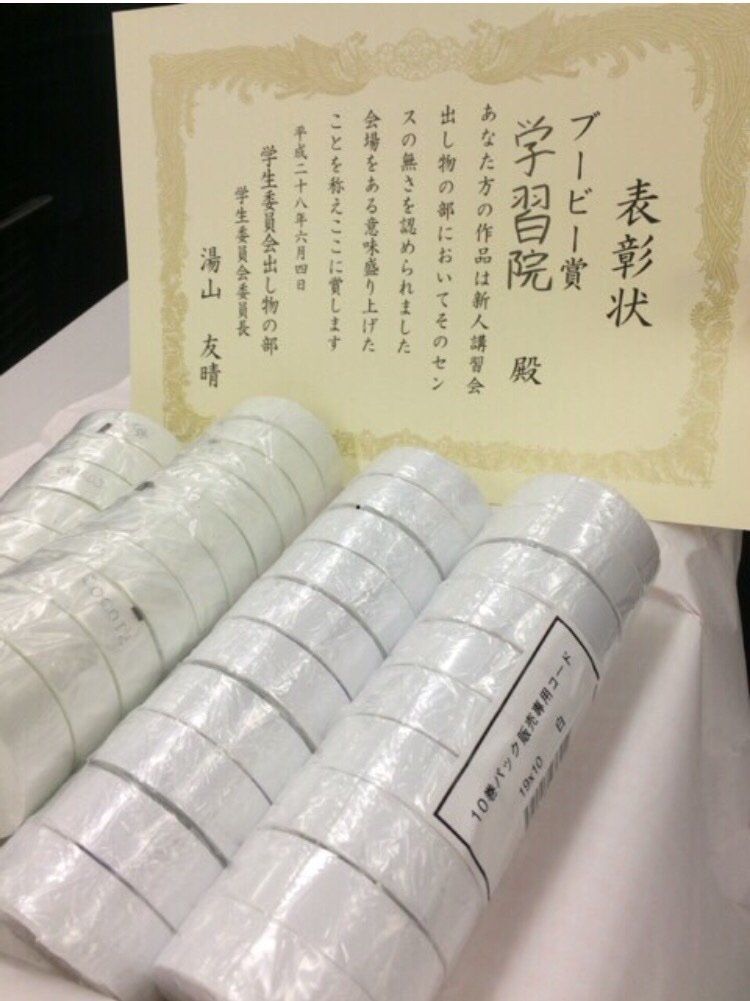 表彰状
ブービー賞
学習院 殿
あなた方の作品は新人講習会
出し物の部においてそのセン
スの無さを認められました
会場をある意味盛り上げた
ことを称えここに賞します
平成二十八年六月四日
学生委員会出し物の部
学生委員会委員長
湯山 友晴
10巻パック販売専用コード
19x10 白